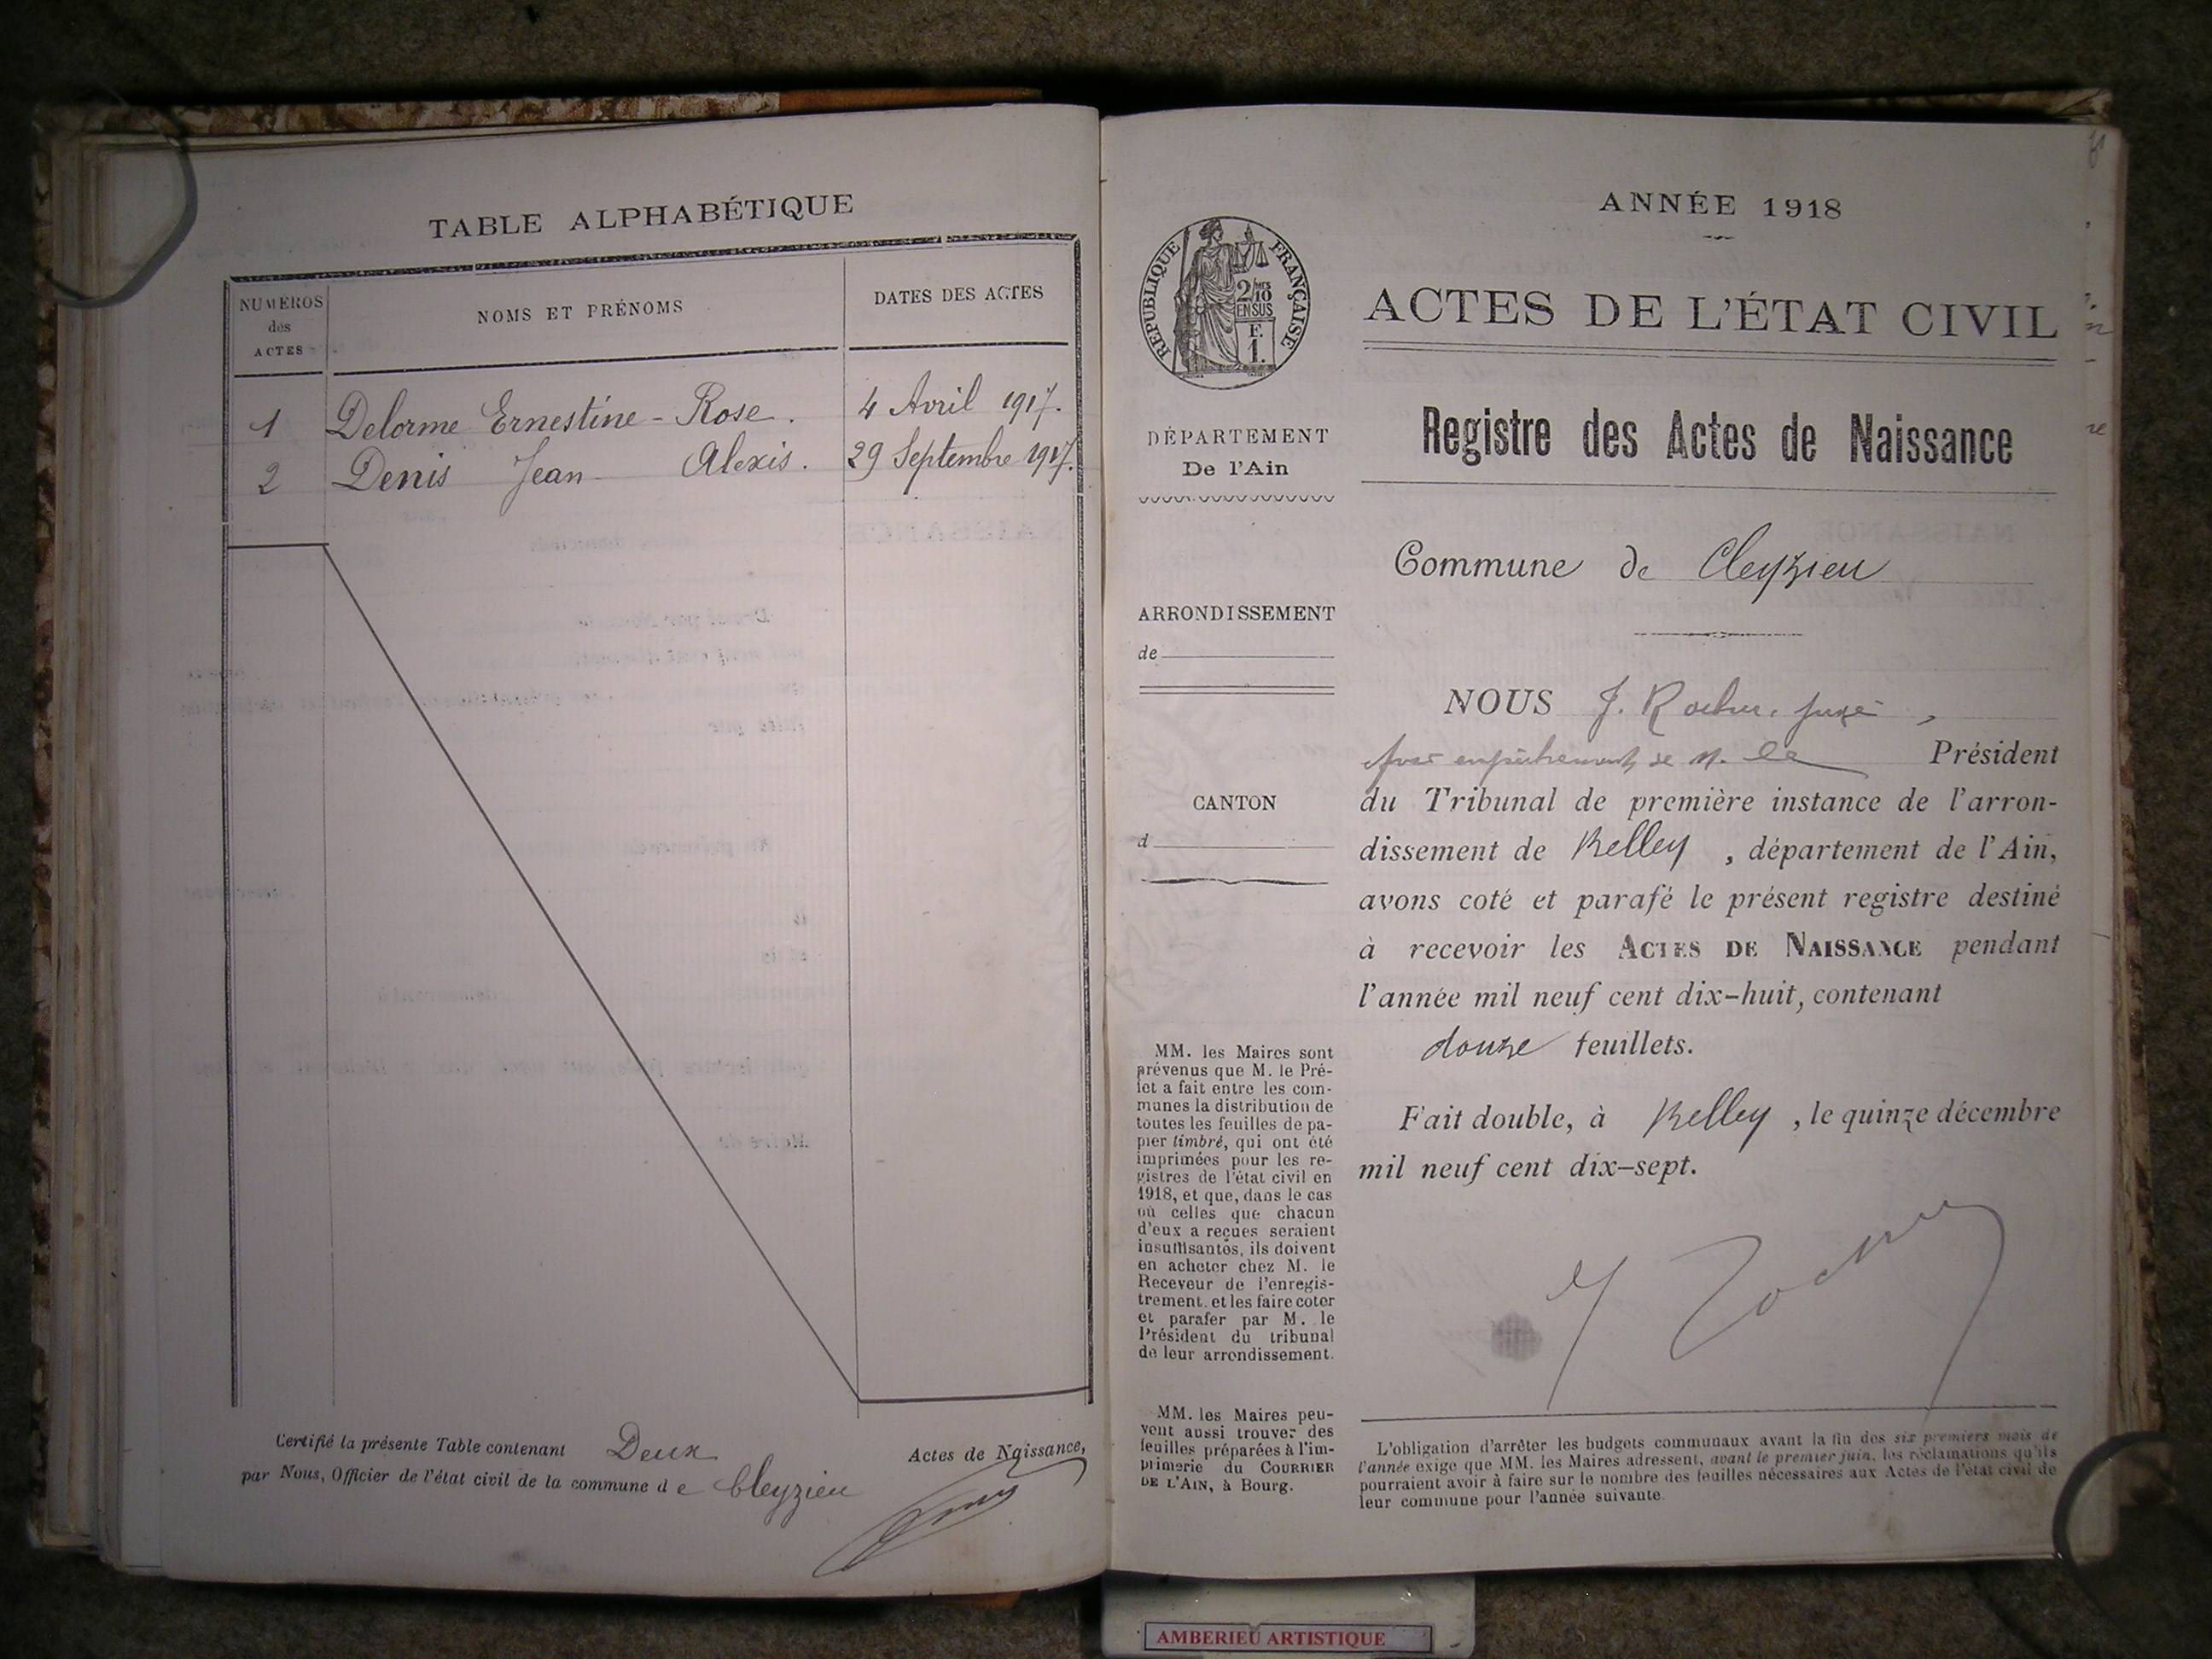 TABLE ALPHABÉTIQUE
NUMEROS
des
ACTES
NOMS ET PRÉNOMS
DATES DES ACTES
1 Delorme Ernestine - Rose. 4 Avril 1917.
2 Denis Jean Alexis. 29 Septembre 1917.
Certifié la présente Table contenant Deux Actes de Naissance,
par Nous, Officier de l'état civil de la commune de Cleyzieu
ANNÉE 1918
RÉPUBLIQUE FRANÇAISE
2/10mes
EN SUS
F.
1.
ACTES DE L'ÉTAT CIVIL
DÉPARTEMENT
De l'Ain
ARRONDISSEMENT
de
CANTON
d
MM. les Maires sont
prévenus que M. le Pré-
fet a fait entre les com-
munes la distribution de
toutes les feuilles de pa-
pier timbré, qui ont été
imprimées pour les re-
gistres de l'état civil en
1918, et que, dans le cas
où celles que chacun
d'eux a reçues seraient
insuffisantes, ils doivent
en acheter chez M. le
Receveur de l'enregis-
trement, et les faire coter
et parafer par M. le
Président du tribunal
de leur arrondissement.
MM. les Maires peu-
vent aussi trouver des
feuilles préparées à l'im-
primerie du COURRIER
DE L'AIN, à Bourg.
Registre des Actes de Naissance
Commune de Cleyzieu
NOUS J. juge,
empêchement de M. le Président
du Tribunal de première instance de l'arron-
dissement de Belley, département de l'Ain,
avons coté et parafé le présent registre destiné
à recevoir les ACTES DE NAISSANCE pendant
l'année mil neuf cent dix-huit, contenant
douze feuillets.
Fait double, à Belley, le quinze décembre
mil neuf cent dix-sept.
L'obligation d'arrêter les budgets communaux avant la fin des six premiers mois de
l'année exige que MM. les Maires adressent, avant le premier juin, les réclamations qu'ils
pourraient avoir à faire sur le nombre des feuilles nécessaires aux Actes de l'état civil de
leur commune pour l'année suivante.
AMBERIEU ARTISTIQUE